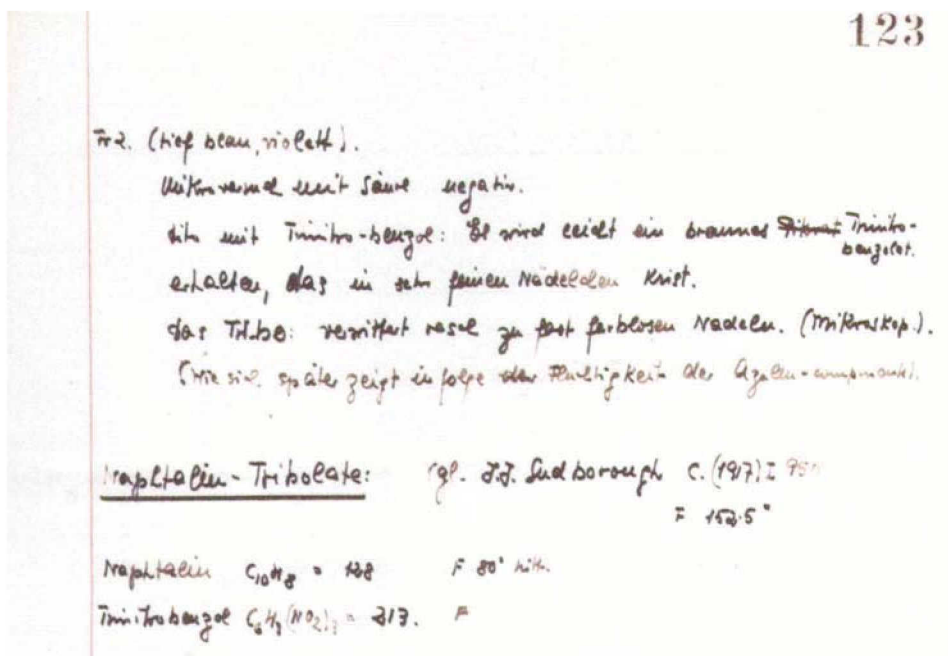 123
Fr 2. (tief blau, violett).
Mikroversuch mit Säure negativ.
dito mit Trinitro-benzol: Es wird leicht ein braunes Pikrat Trinitro-
benzolat.
erhalten, das in sehr feinen Nädelchen Krist.
das Tribo: verwittert rasch zu fast farblosen Nadeln. (Mikroskop.).
(Wie sich später zeigt infolge der Flüchtigkeit der Azulen-componente).
Naphtalin-Tribolate: Vgl. J.J. Sudborough C. (1917) I
F 152.5°
Naphtalin C10H8 = 128 F 80°
Trinitrobenzol C6H3(NO2)3 = 213. F